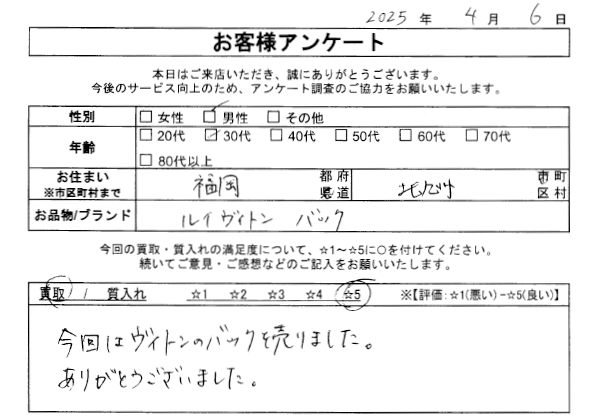 2025 年 4 月 6 日
お客様アンケート
本日はご来店いただき、誠にありがとうございます。
今後のサービス向上のため、アンケート調査のご協力をお願いいたします。
性別 □ 女性 □ 男性 □ その他
年齢 □ 20代 □ 30代 □ 40代 □ 50代 □ 60代 □ 70代
□ 80代以上
お住まい ※市区町村まで 福岡 都府県道 北九州 市町区村
お品物/ブランド ルイヴィトン バック
今回の買取・質入れの満足度について、☆1～☆5に○を付けてください。
続いてご意見・ご感想などのご記入をお願いいたします。
買取 / 質入れ ☆1 ☆2 ☆3 ☆4 ☆5 ※【評価:☆1(悪い)-☆5(良い)】
今回はヴィトンのバックを売りました。
ありがとうございました。